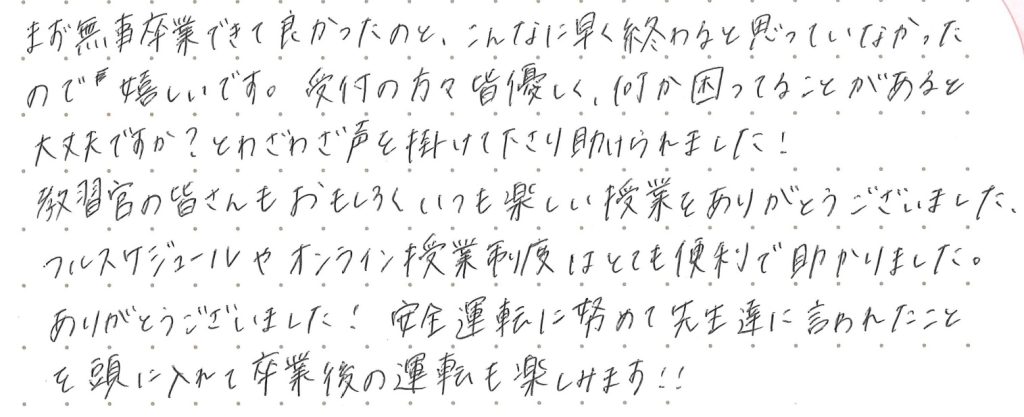 まず無事卒業できて良かったのと、こんなに早く終わると思っていなかった
ので嬉しいです。受付の方々皆優しく、何か困ってることがあると
大丈夫ですか?とわざわざ声を掛けて下さり助けられました!
教習官の皆さんもおもしろくいつも楽しい授業をありがとうございました、
フルスケジュールやオンライン授業制度はとても便利で助かりました。
ありがとうございました! 安全運転に努めて先生達に言われたこと
を頭に入れて卒業後の運転も楽しみます!!